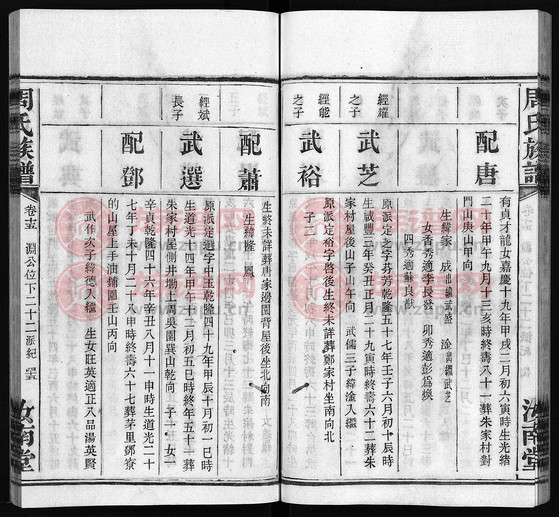 周氏族譜
汝南堂
配唐
有貞才龍女嘉慶十九年甲戌二月初六寅時生光緒
二十年甲午九月十三亥時終壽八十一葬朱家村對
門山庚山甲向
生緯家
女香秀適李長發 卯秀適彭爲傑
四秀適蕭良猷
經耀之子
武芝
原派定之字芬芳乾隆五十七年壬子六月初十辰時
生咸豐三年癸丑正月二十九寅時終壽六十二葬朱
家村屋後山子山午向 武儒三子緯淦入繼
經能之子
武裕
原派定裕字啓後生終未詳葬鄭家村坐南向北
子二
配蕭
生終未詳葬唐家邊園背屋後坐北向南
生緯隆 鳳
經斌長子
武選
原派定選字中玉乾隆四十九年甲辰十月初一巳時
生道光十四年甲午十二月初三巳時終年五十一葬
朱家村屋側井塝上周吳園巽山乾向 子一 女一
配鄧
辛貞乾隆四十六年辛丑八月十一申時生道光二十
七年丁未十月二十八申時終壽六十七葬茅里鄧寮
的山屋上手油鋪園壬山丙向
武作次子緯德入繼 生女旺英適正八品湯英賢
周氏族譜
卷五 淵公位下二十二派紀
汝南堂